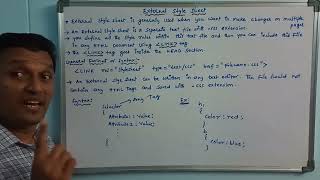 External Style Sheet
• External style sheet is generally used when you want to make changes on multiple pages
• An External style sheet is a separate text file with .css extension.
• you define all the style rules within this text file and then you can include this file
in any HTML document using <LINK> tag
• The <LINK> tag goes inside the HEAD section
General Format or Syntax:-
<LINK rel="stylesheet" type="text/css" href="filename.css">
• An External style sheet can be written in any text editor. The file should not
contain any HTML tags and saved with .css extension.
Syntax: selector → Any Tag
{
Attribute1 : Value;
Attribute2 : Value;
}
Ex:
h1
{
color : red;
}
{
color : blue;
}